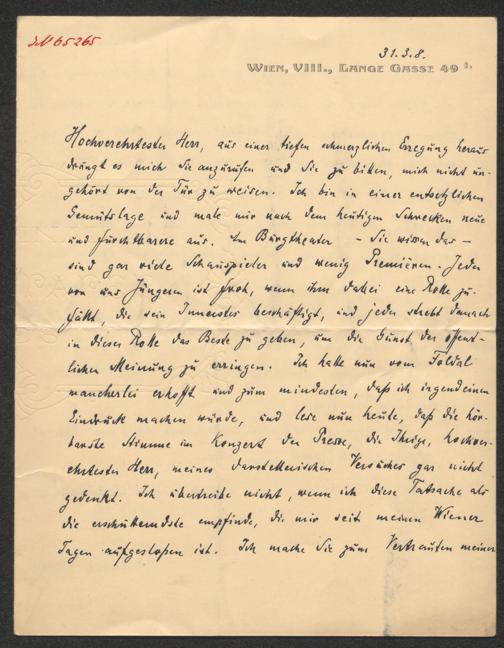 IN 65265
31.3.8.
WIEN, VIII., LANGE GASSE 49
Hochverehrtester Herr, aus einer tiefen schmerzlichen Erregung heraus
drängt es mich Sie anzurufen und Sie zu bitten, mich nicht un-
gehört von der Tür zu weisen. Ich bin in einer entsetzlichen
Gemütslage und male mir nach dem heutigen Schrecken neue
und furchtbarere aus. Im Burgtheater – Sie wissen das –
sind gar viele Schauspieler und wenig Premièren. Jeder
von uns Jüngeren ist froh, wenn ihm dabei eine Rolle zu-
fällt, die sein Innerstes beschäftigt, und jeder strebt danach
in dieser Rolle das Beste zu geben, um die Gunst der öffent-
lichen Meinung zu erringen. Ich hatte nun vom Foldal
mancherlei erhofft und zum mindesten, daß ich irgendeinen
Eindruck machen würde, und lese nun heute, daß die hör-
barste Stimme im Konzert der Presse, die Ihrige, hochver-
ehrtester Herr, meines darstellerischen Versuches gar nicht
gedenkt. Ich übertreibe nicht, wenn ich diese Tatsache als
die erschütterndste empfinde, die mir seit meinen Wiener
Tagen aufgestoßen ist. Ich mache Sie zum Vertrauten meiner